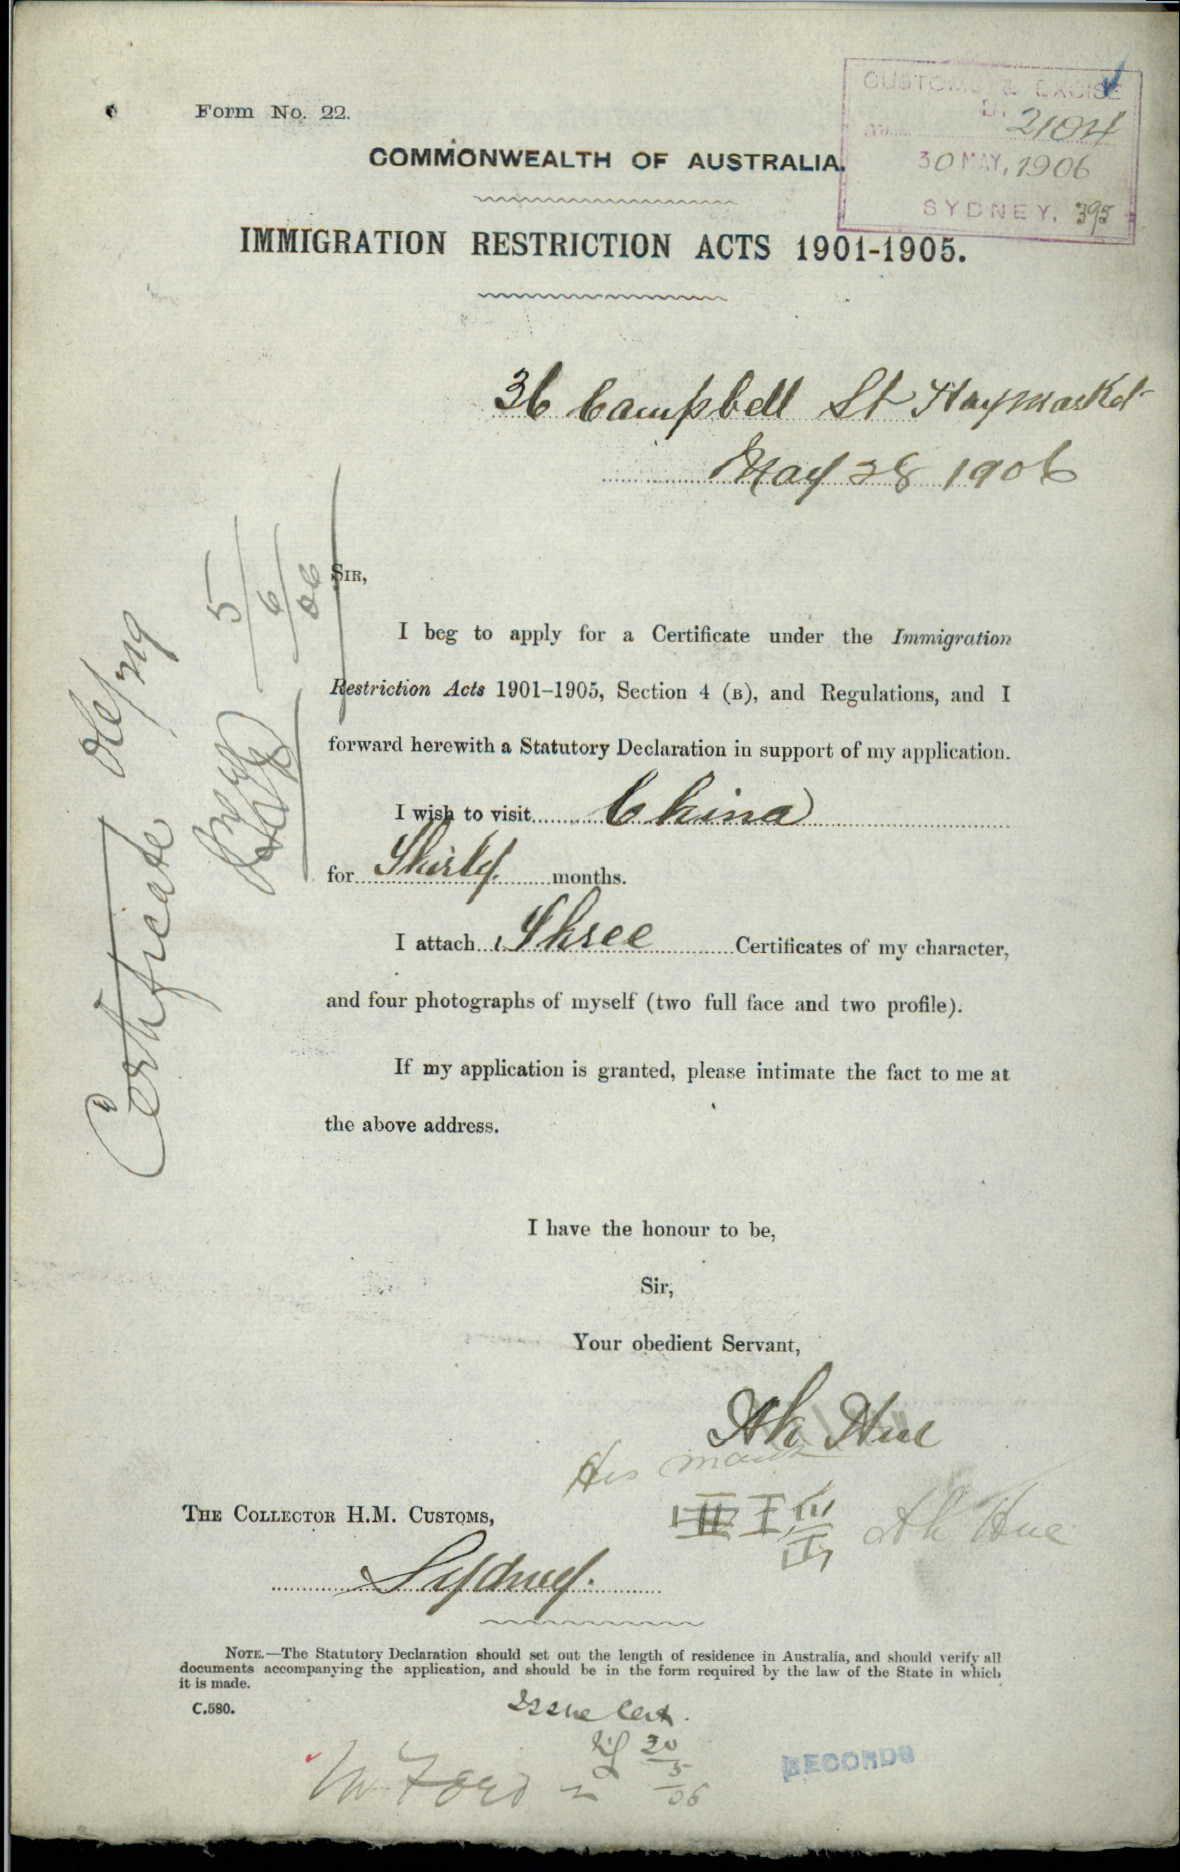 Form No. 22.
CUSTOMS & EXCISE
2104
30 MAY. 1906
SYDNEY. 395
COMMONWEALTH OF AUSTRALIA.
IMMIGRATION RESTRICTION ACTS 1901-1905.
36 Campbell St Haymarket
May 28 1906
SIR,
I beg to apply for a Certificate under the Immigration
Restriction Acts 1901–1905, Section 4 (B), and Regulations, and I
forward herewith a Statutory Declaration in support of my application.
I wish to visit China
for Thirty months.
I attach Three Certificates of my character,
and four photographs of myself (two full face and two profile).
If my application is granted, please intimate the fact to me at
the above address.
Certificate
5/6/06
I have the honour to be,
Sir,
Your obedient Servant,
Ah Hue
His mark
Ah Hue
THE COLLECTOR H.M. CUSTOMS,
Sydney.
NOTE.—The Statutory Declaration should set out the length of residence in Australia, and should verify all
documents accompanying the application, and should be in the form required by the law of the State in which
it is made.
C.580.
Issue Cert.
30/5/06
RECORDS